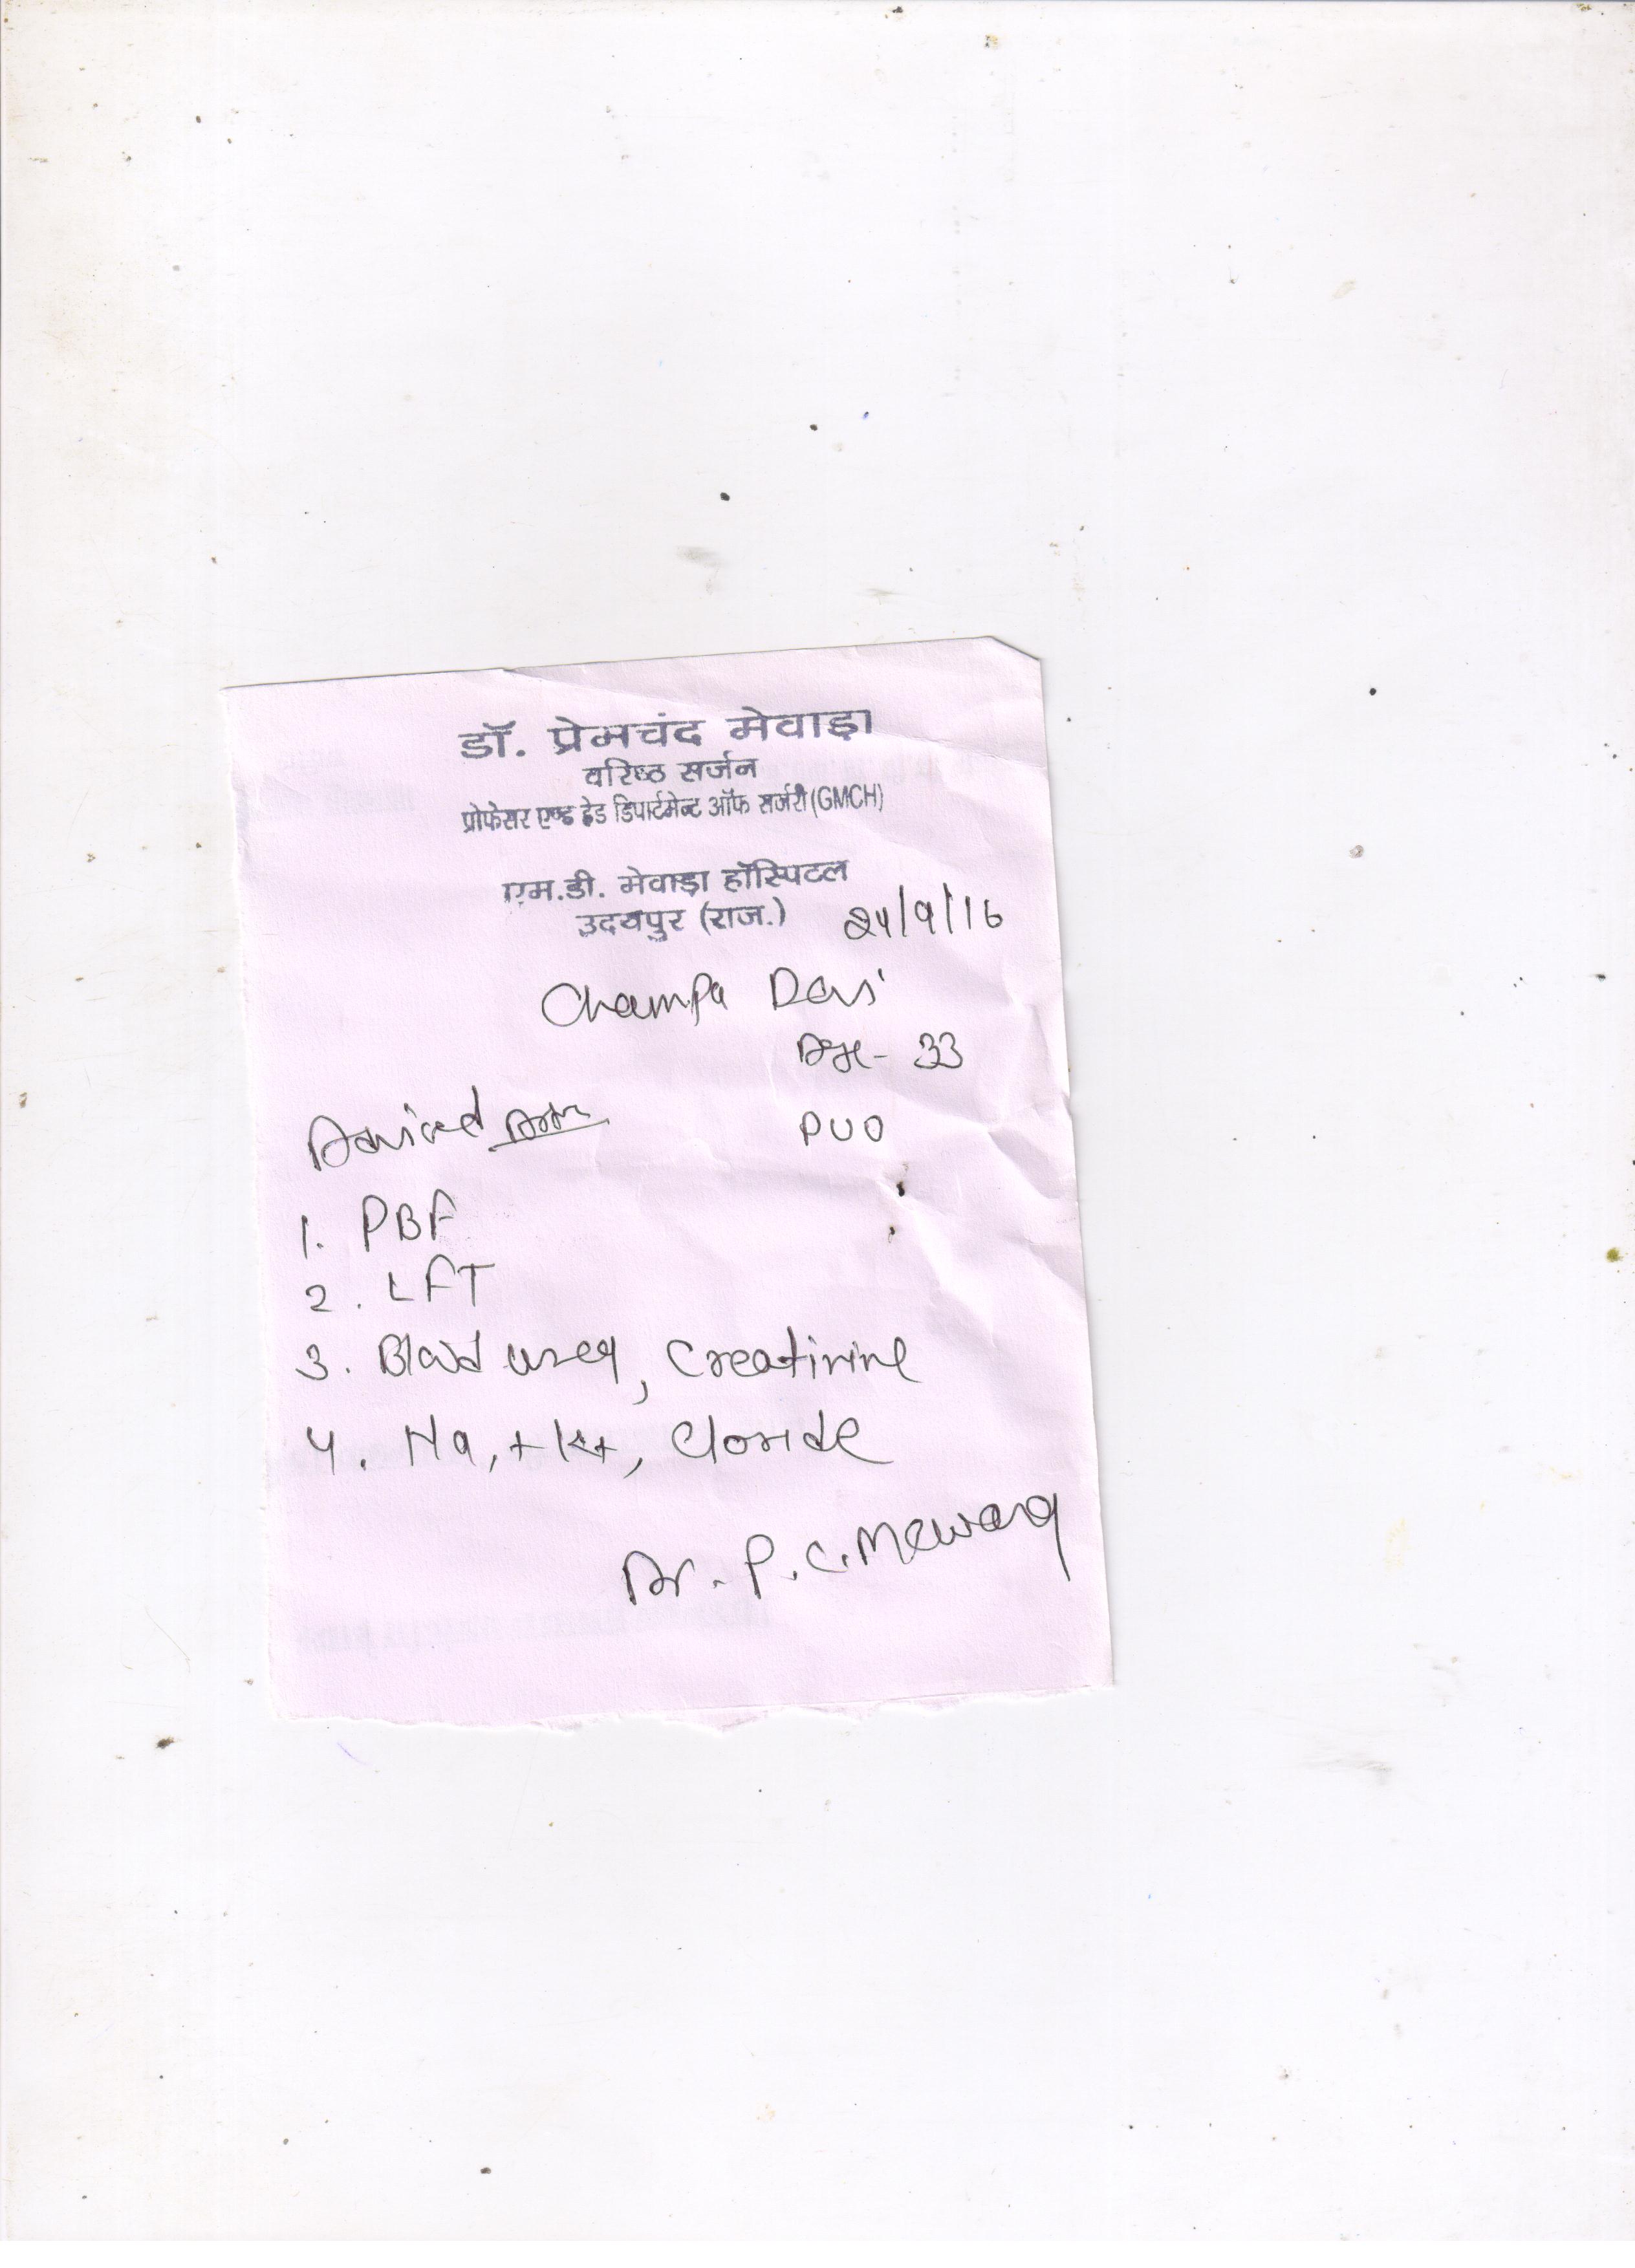 डॉ. प्रेमचंद मेवाड़ा
वरिष्ठ सर्जन
प्रोफेसर एण्ड हेड डिपार्टमेन्ट ऑफ सर्जरी (GMCH)
एम.डी. मेवाड़ा हॉस्पिटल
उदयपुर (राज.) 24/9/16
Champa Devi
Age - 33
Adviced
PUO
1. PBF
2. LFT
3. Blood urea, Creatinine
4. Na,+K+, Cloride
Dr. P.C. Mewara